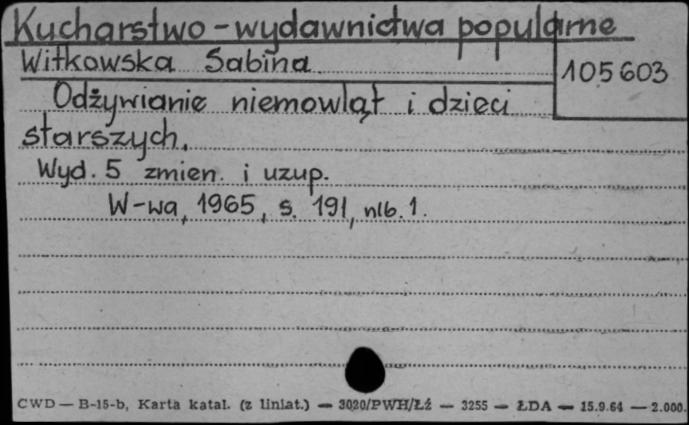 Kucharstwo - wydawnictwa popularne
Witkowska Sabina
105603
Odżywianie niemowląt i dzieci
starszych.
Wyd. 5 zmien. i uzup.
W-wa, 1965, s. 191, nlb. 1.
CWD — B-15-b, Karta katal. (z liniat.) — 3020/PWH/Łź — 3255 — ŁDA — 15.9.64 — 2.000.